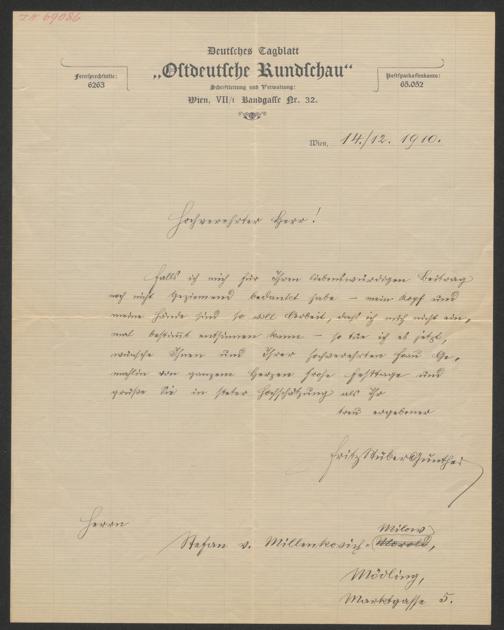 I.N. 69086
Deutsches Tagblatt
„Ostdeutsche Rundschau“
Schriftleitung und Verwaltung:
Wien, VII/1 Bandgasse Nr. 32.
Fernsprechstelle:
6263
Postsparkassenkonto:
65.052
Wien, 14./12. 1910.
Hochverehrter Herr!
Falls ich mich für Ihren liebenswürdigen Beitrag
noch nicht geziemend bedankt habe – mein Kopf und
meine Hände sind so voll Arbeit, daß ich mich nicht ein-
mal bestimmt entsinnen kann – so tue ich es jetzt,
wünsche Ihnen und Ihrer hochverehrten Frau Ge-
mahlin von ganzem Herzen frohe Festtage und
grüße Sie in steter Hochschätzung als Ihr
treu ergebener
Fritz Stüber Gunther
Herrn
Milow
Stefan v. Millenkovich-(Morold),
Mödling,
Marktgasse 5.